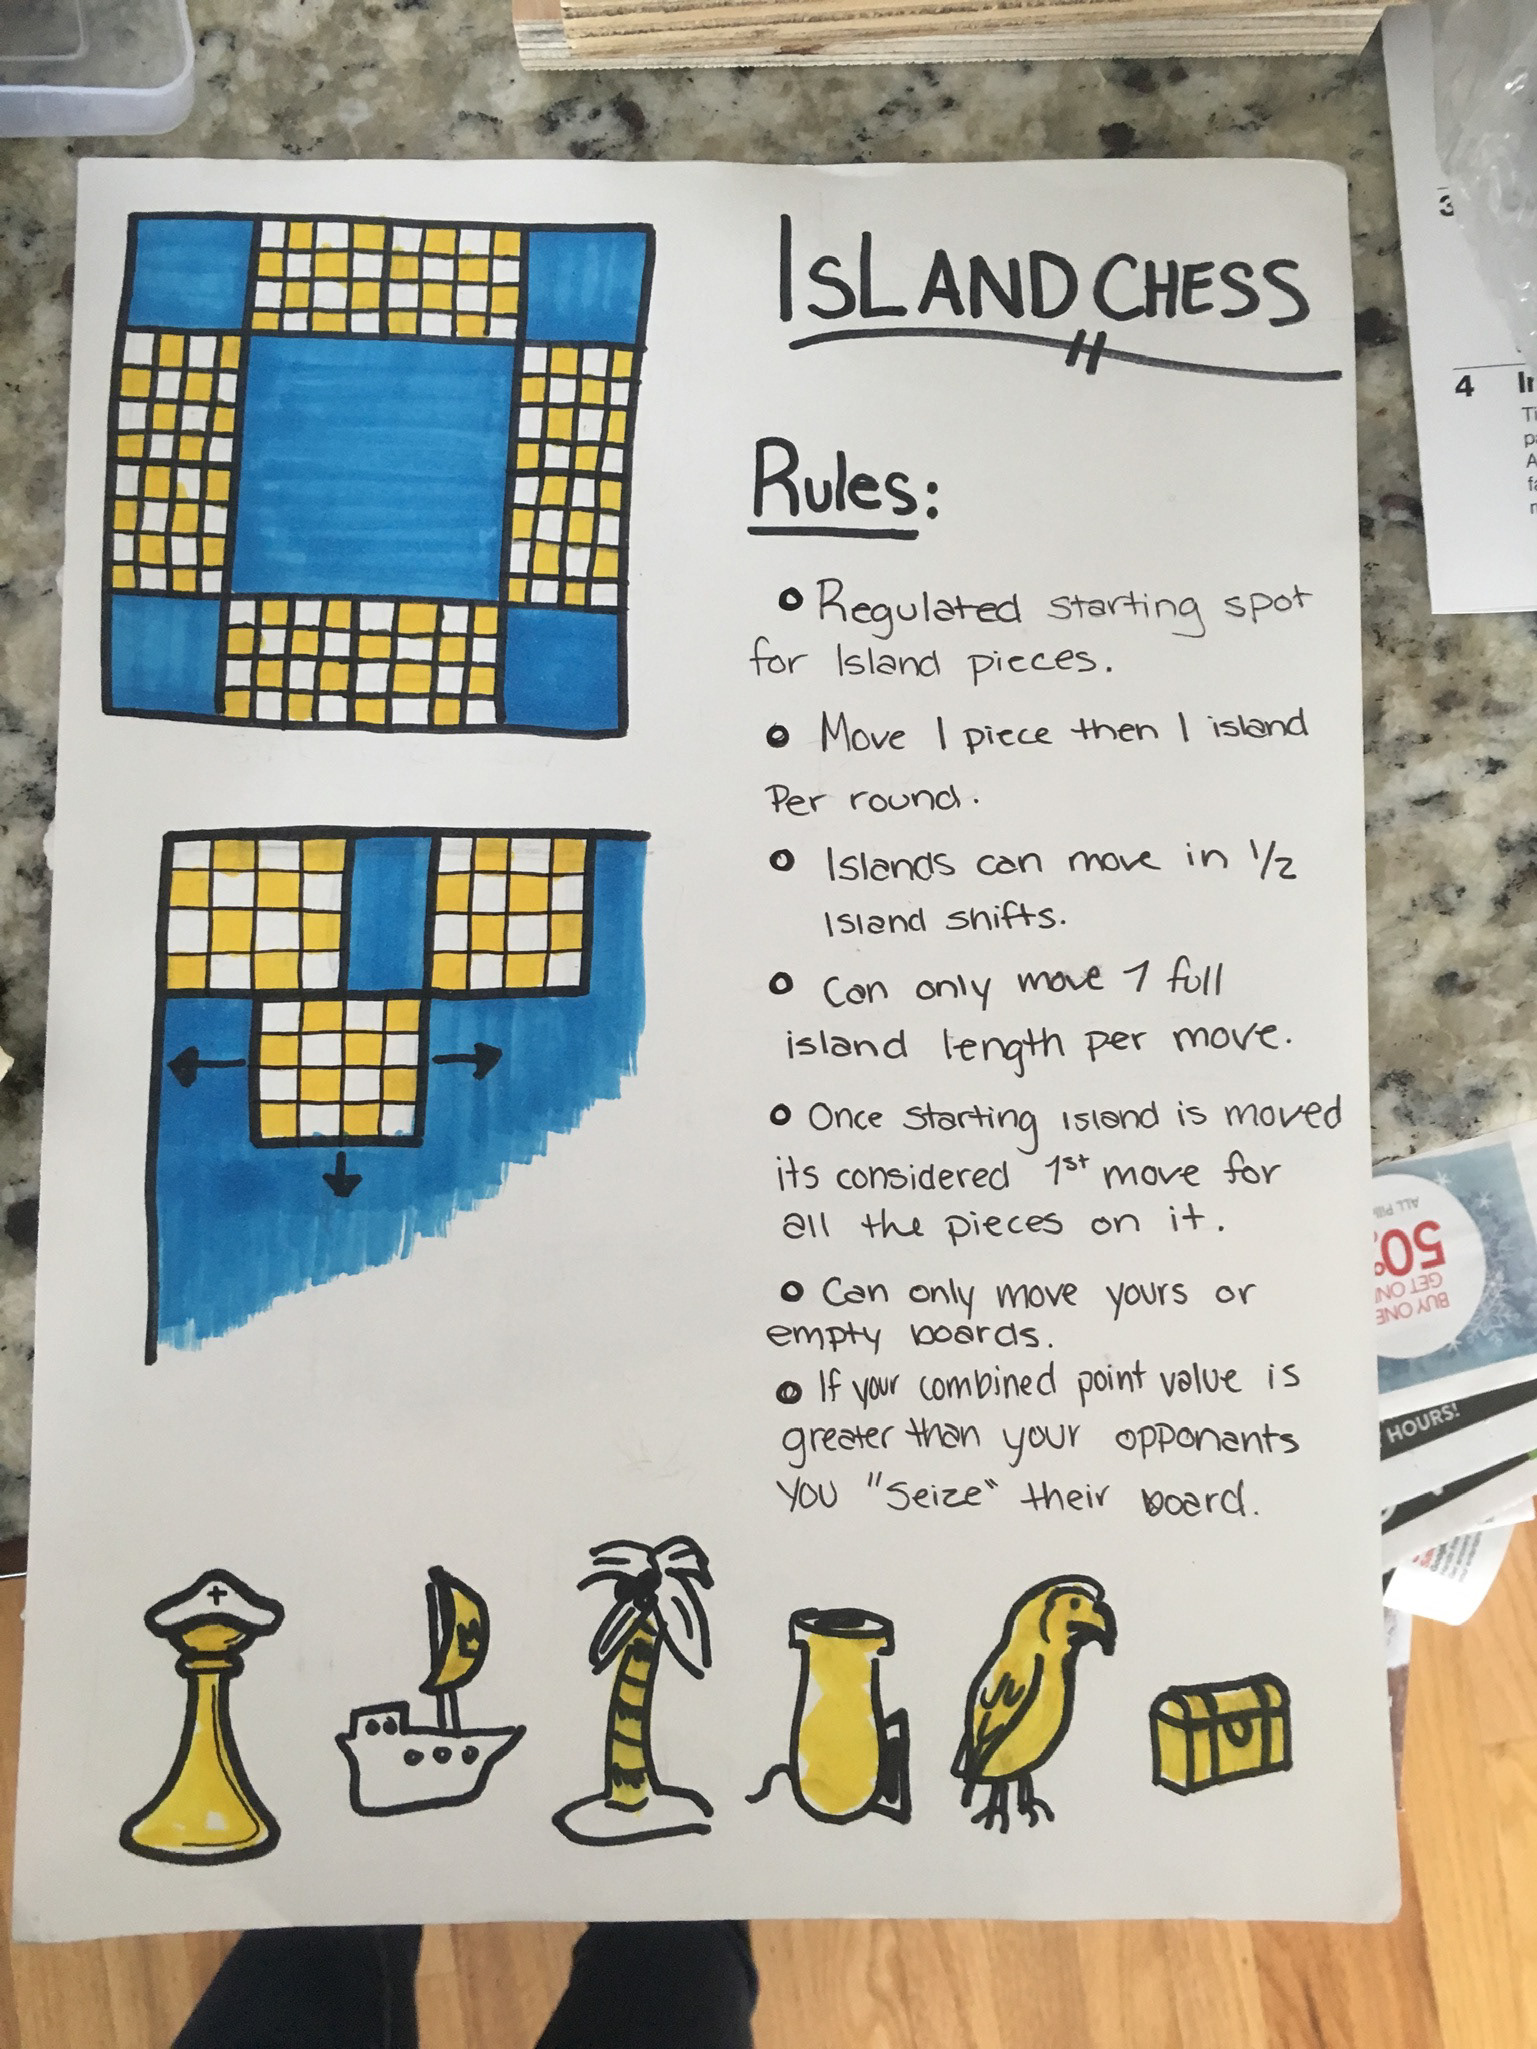 ISLAND CHESS
Rules:
Regulated starting spot
for Island pieces.
Move 1 piece then 1 island
Per round.
Islands can move in 1/2
Island shifts.
Can only move 1 full
island length per move.
Once starting island is moved
its considered 1st move for
all the pieces on it.
Can only move yours or
empty boards.
If your combined point value is
greater than your opponants
you "Seize" their board.
3
4
HOURS!
BUY ONE
GET ON
50%